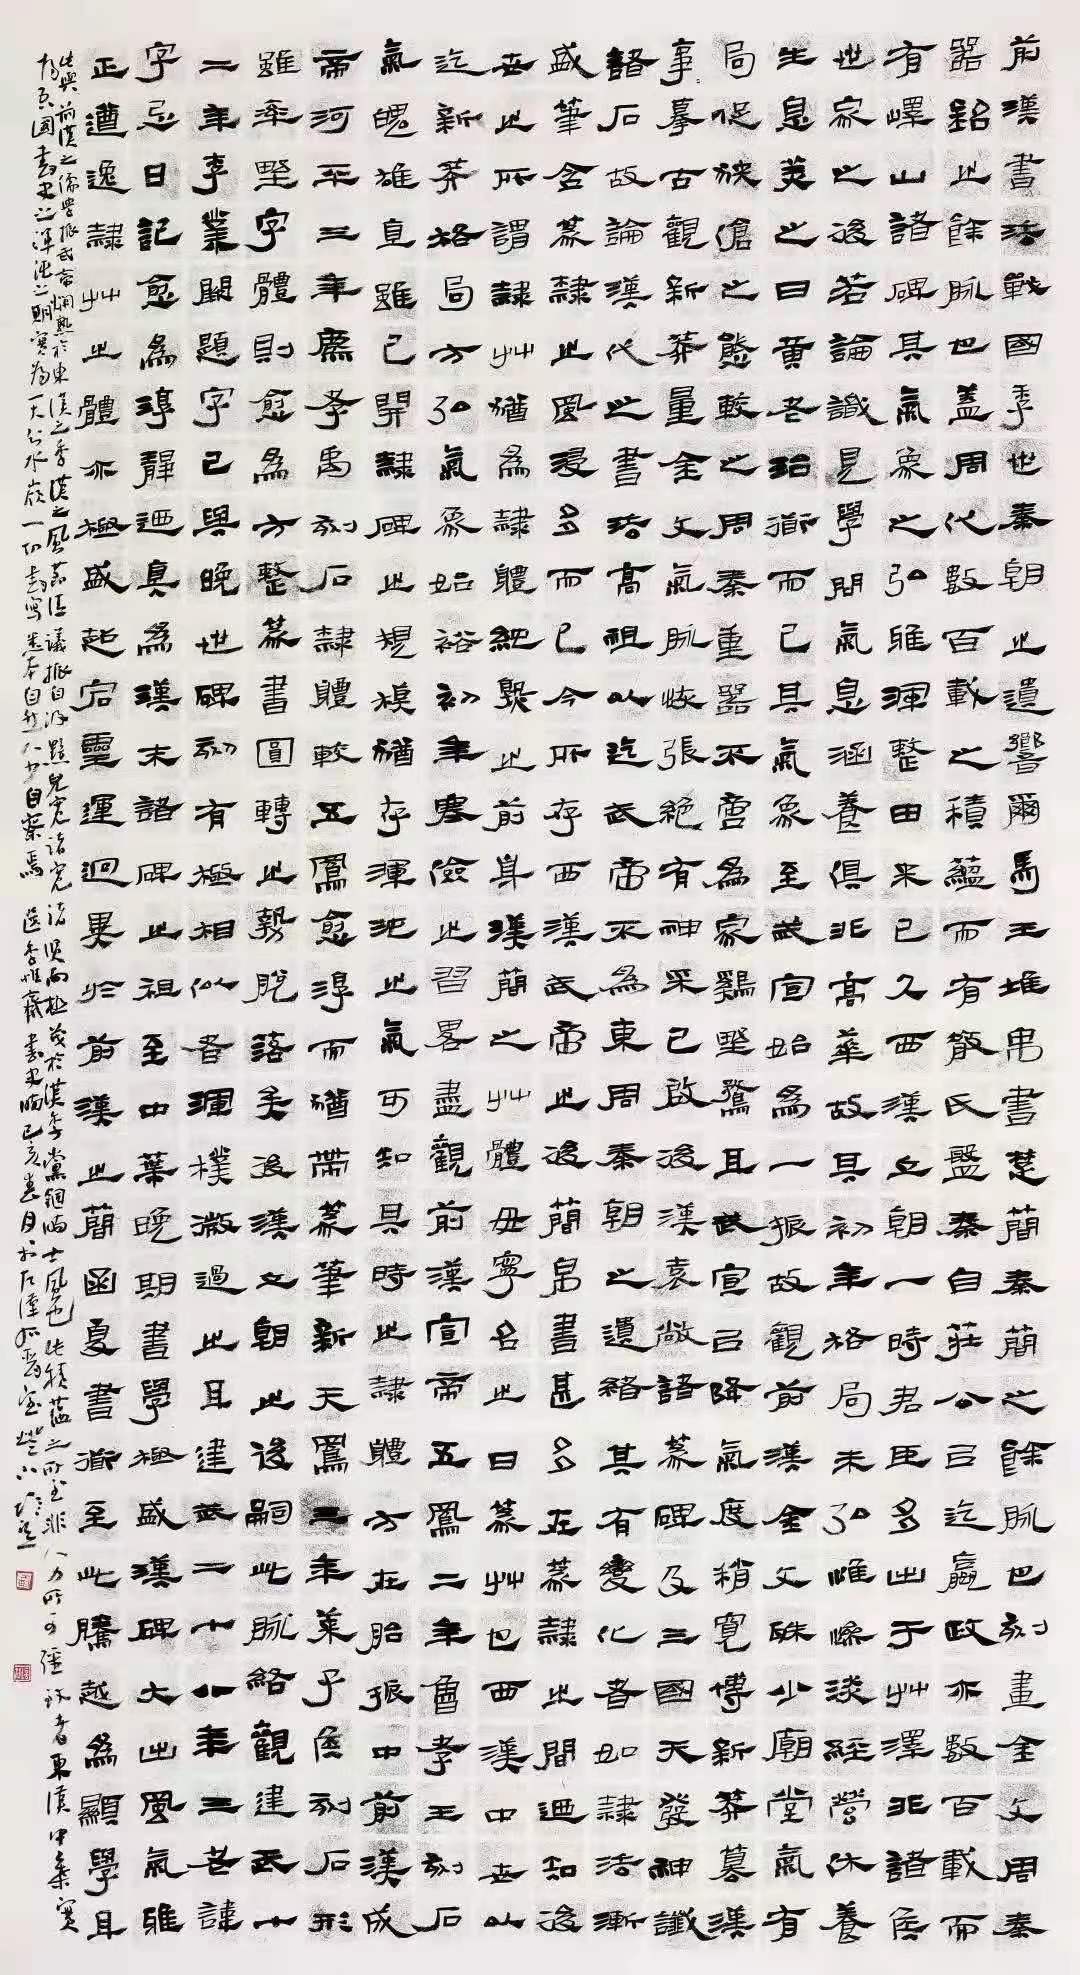 前漢書法戰國季世秦朝之遺響爾馬王堆帛書楚簡秦簡之餘脈也刻畫金文周秦
器銘之餘脈也蓋周代數百載之積蘊而有散氏盤秦自莊公以迄嬴政亦數百載而
有嶧山諸碑其氣象之弘雄渾整由來已久西漢立朝一時君臣多出于艸澤非諸侯
世家之後若論識見學問氣息涵養俱非高華故其初年格局未弘惟憺淡經營休養
生息美之曰黃老治術而已其氣象至武宣始為一振故觀前漢金文殊少廟堂氣有
局促狹傖之態較之周秦重器不啻為家鷄野鶩且武宣以降氣度稍寬博新莽摹漢
事摹古觀新莽量金文氣脈恢張絕有神采已啟後漢袁敞諸篆碑及三國天發神讖
諸石故論漢代之書法高祖以迄武帝不為東周秦朝之遺緒其有變化者如隸法漸
盛筆含篆隸之風浸多而已今所存西漢武帝之後簡帛書甚多在篆隸之間迴知後
世之所謂隸艸猶為隸體之前身漢簡之艸體毋寧名之曰篆艸也西漢中世以
迄新莽格局方弘氣象始裕初年寒儉之習畧盡觀前漢宣帝五鳳二年魯孝王刻石
氣魄雄直雖已開隸碑之規模猶存渾沌之氣可知其時之隸體方在胎振中前漢成
帝河平三年麃孝禹刻石隸體較五鳳愈淳而猶帶篆筆新天鳳三年萊子侯刻石形
雖率野字體則愈為方整篆書圓轉之勢脫落矣後漢立朝此後嗣此脈絡觀建武十
二年李業闕題字已與晚世碑刻有極相似者渾樸微過之耳建武二十八年三老諱
字忌日記愈為淳迴真為漢末諸碑之祖至中葉晚期書學極盛漢碑大出風氣雄
正遒逸隸艸之體亦極盛起宕靈運迥異於前漢之簡書術至此騰越為顯學耳
此與前漢之儒學振武帝爛熟於東漢之季漢之風清議振自諸賢而極於漢季黨錮士風也此積蘊之所至非人力所可彊致者東漢中葉實
為吾國書史之渾沌之期實為一大分水嶺一切書寫悉本自然八分自茲焉 季惟齋書史 己亥春月